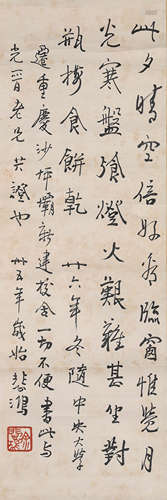 此夕晴空倍好看临窗惟觉月
光寒盤飧燈火艱難甚坐對
瓶梅食餅乾 廿六年冬隨中央大學
遷重慶沙坪壩新建校舍一切不便書此与
光晉老兄共證也 卅五年歲始 悲鴻